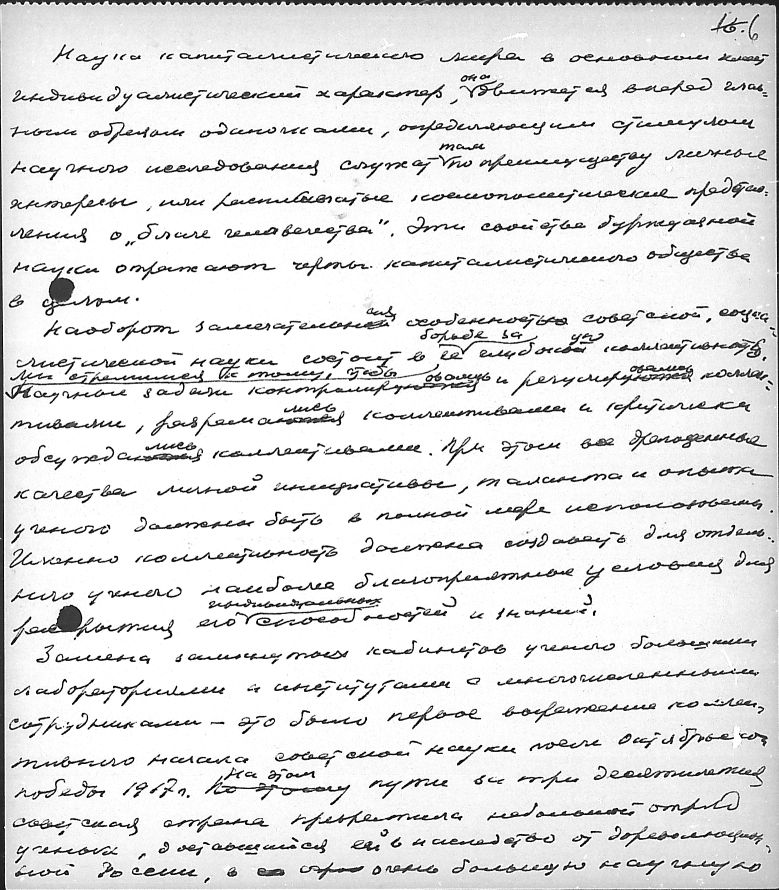 16.6
Наука капиталистического мира в основном имеет
индивидуалистический характер, она движется вперед глав-
ным образом одиночками, определяющим стимулом
научного исследования служат там по преимуществу личные
интересы, или расплывчатые космополитические представ-
ления о „благе человечества". Эти свойства буржуазной
науки отражают черты капиталистического общества
в целом.
Наоборот замечательная особенность советской, социа-
листической науки состоит в борьбе за ее глубокую коллективность.
Мы стремимся к тому, чтобы
научные задачи контролировались и регулировались коллек-
тивами, разрешались коллективами и критически
обсуждались коллективами. При этом все драгоценные
качества личной инициативы, таланта и опыта
ученого должны быть в полной мере использованы.
Именно коллективность должна создавать для отдель-
ного ученого наиболее благоприятные условия для
раскрытия его индивидуальных способностей и знаний.
Замена замкнутых кабинетов ученого большими
лабораториями и институтами с многочисленными
сотрудниками — это было первое выражение коллек-
тивного начала советской науки после Октябрьской
победы 1917 г. На этом пути за три десятилетия
советская страна превратила небольшой отряд
ученых, доставшийся ей в наследство от дореволюцион-
ной России, в очень большую научную